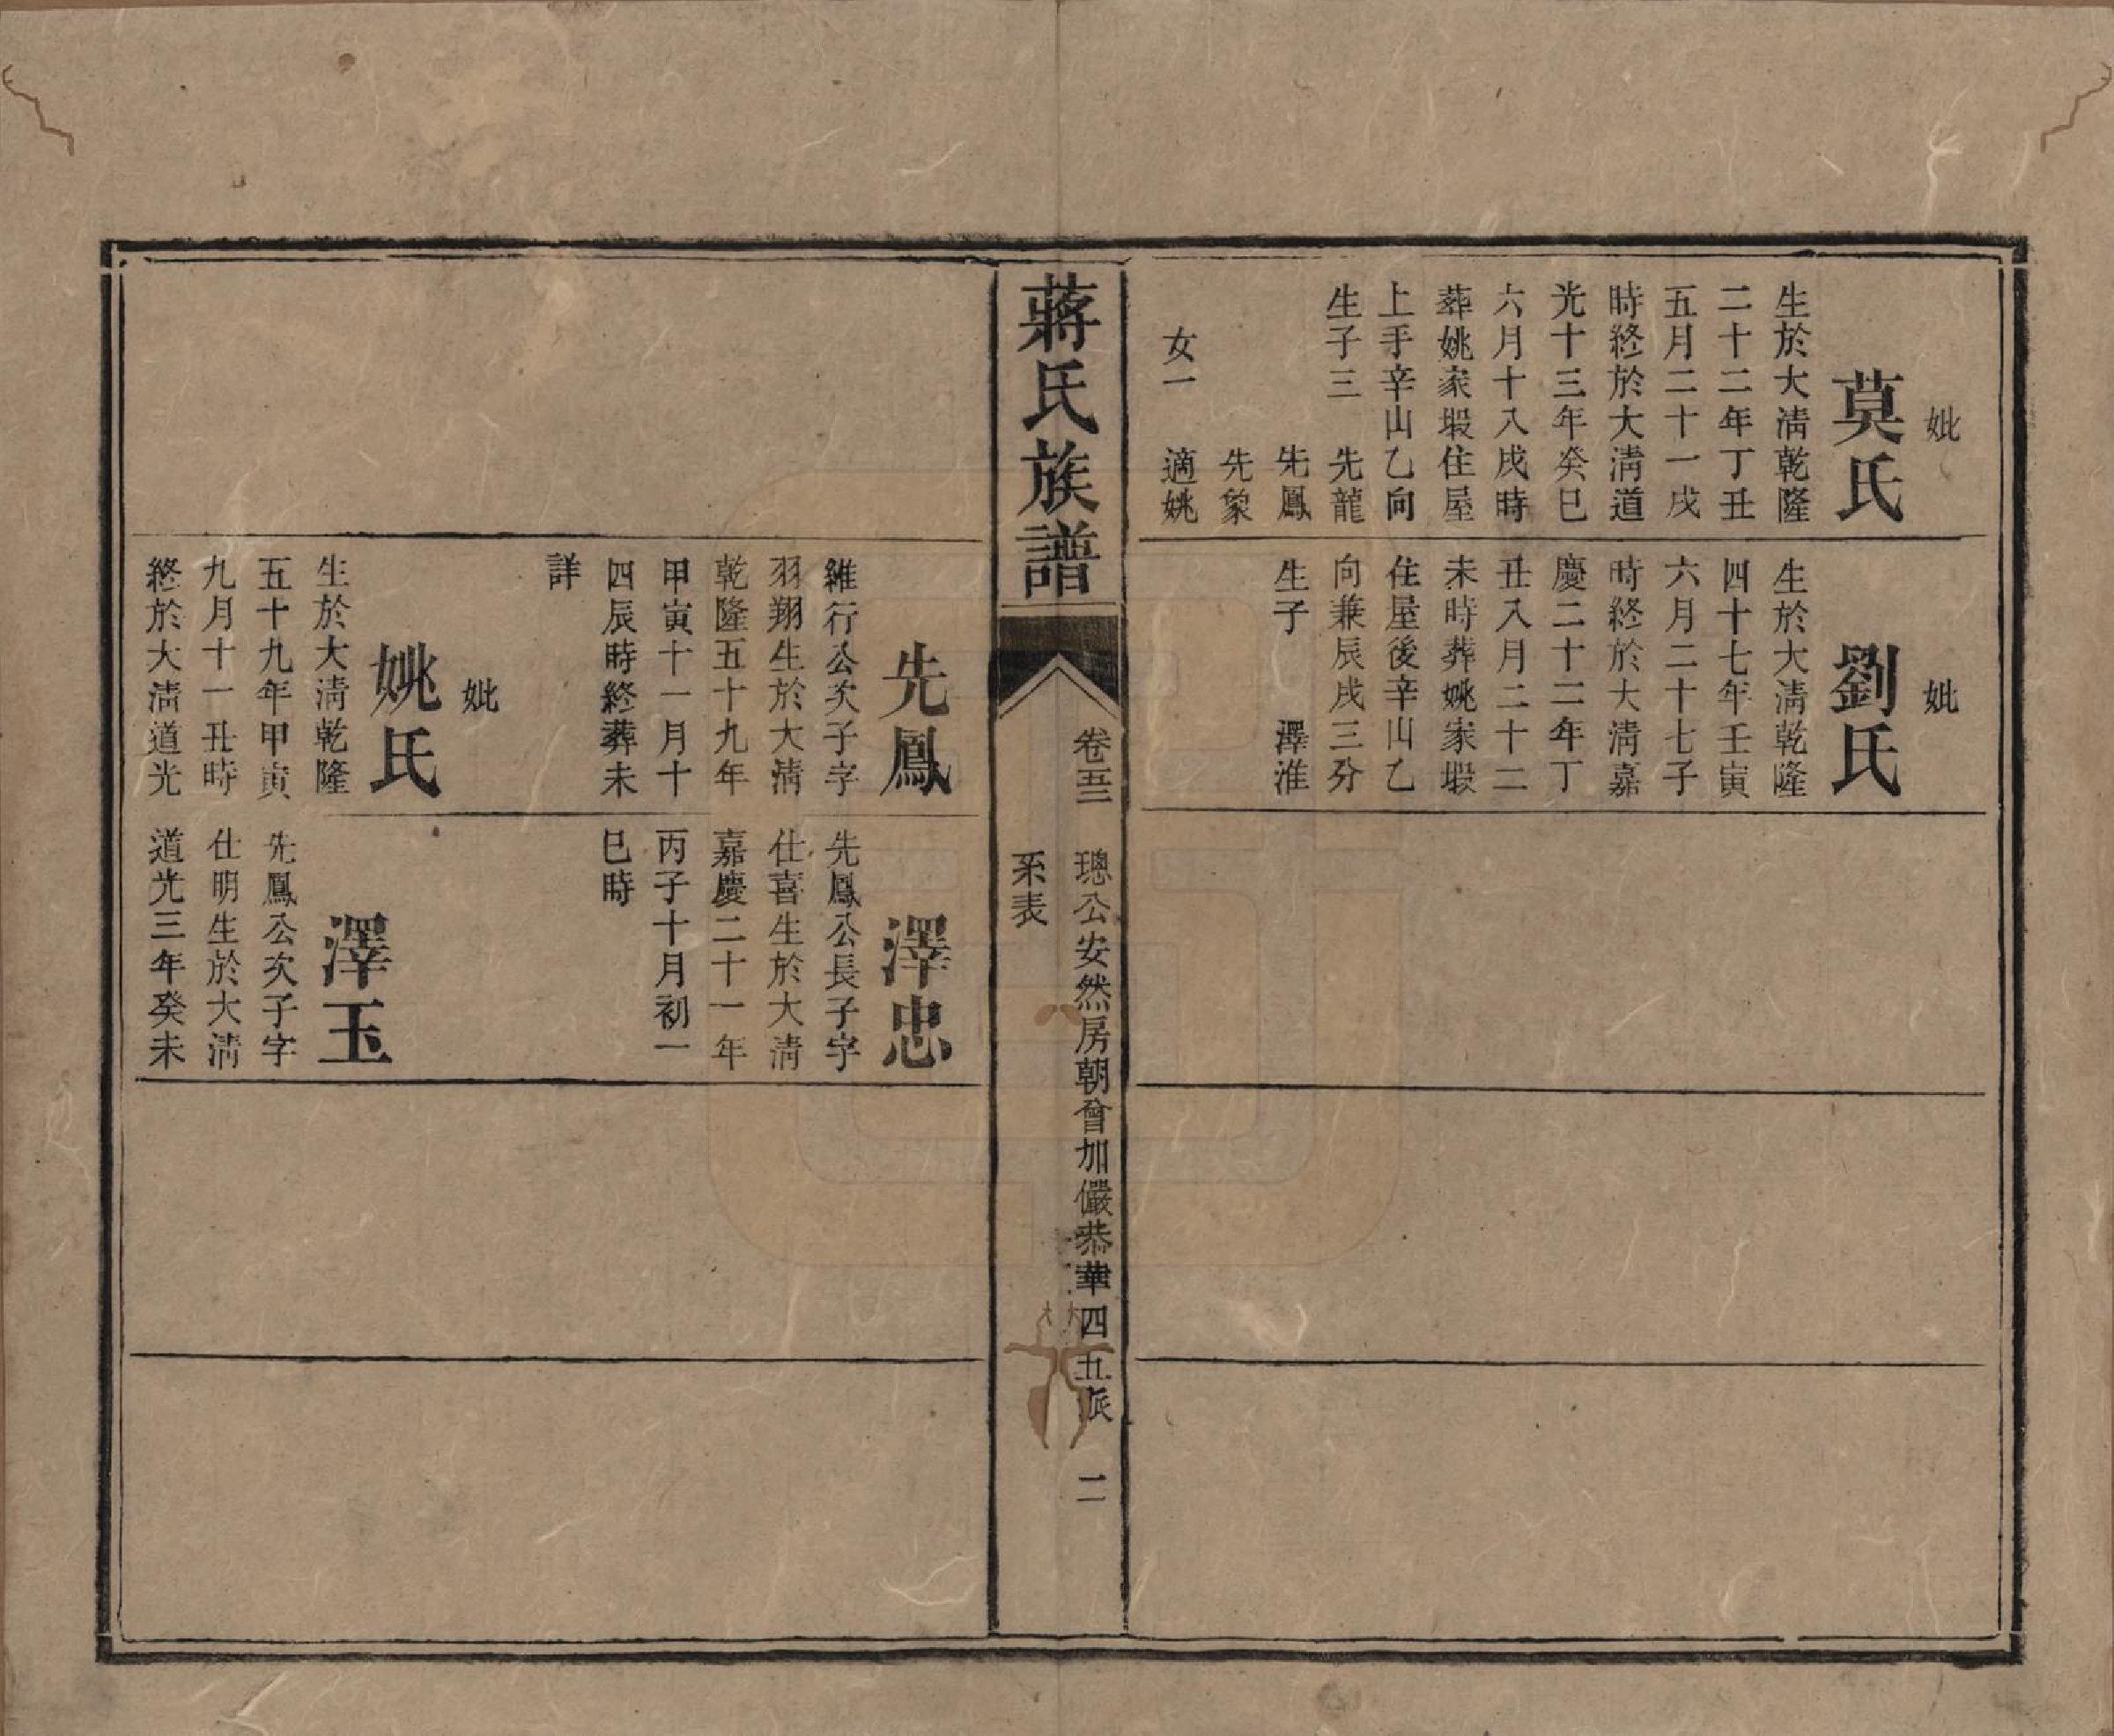 妣
莫氏
生於大清乾隆
二十二年丁丑
五月二十一戌
時終於大清道
光十三年癸巳
六月十八戌時
葬姚家塅住屋
上手辛山乙向
生子三 先龍
先鳳
先象
女一 適姚
妣
劉氏
生於大清乾隆
四十七年壬寅
六月二十七子
時終於大清嘉
慶二十二年丁
丑八月二十二
未時葬姚家塅
住屋後辛山乙
向兼辰戌三分
生子 澤淮
蔣氏族譜
卷五三
璁公安然房朝會加儼恭華四五派 二
系表
先鳳
維行公次子字
羽翔生於大清
乾隆五十九年
甲寅十一月十
四辰時終葬未
詳
妣
姚氏
生於大清乾隆
五十九年甲寅
九月十一丑時
終於大清道光
澤忠
先鳳公長子字
仕喜生於大清
嘉慶二十一年
丙子十月初一
巳時
澤玉
先鳳公次子字
仕明生於大清
道光三年癸未